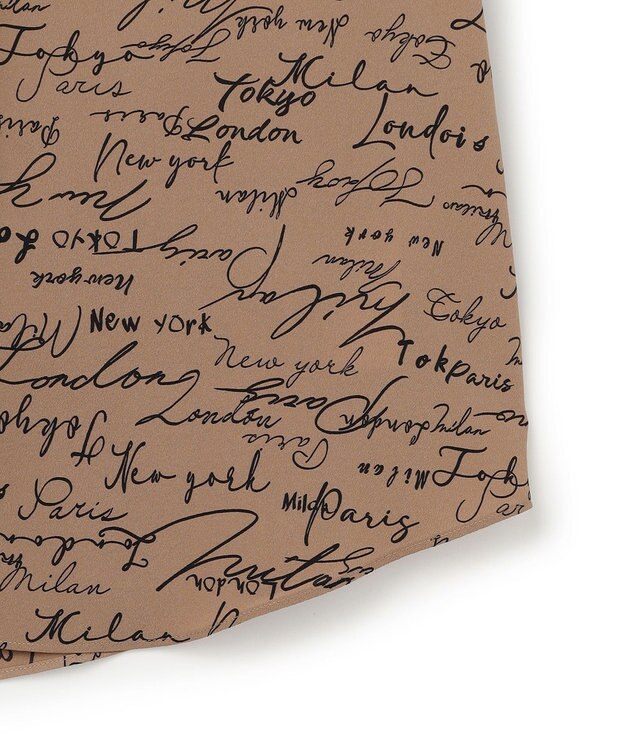 New york
Tokyo
Tokyo
Tokyo
Tokyo
Paris
Milan
Tokyo
Paris
Paris
London
Londois
New york
Milan
Tokyo
Milan
TOKYO
Paris
New york
New york
Milan
Milan
Tokyo
New york
New york
Tok
Paris
London
Paris
London
London
Tokyo
Paris
New york
Milan
Tok
Paris
Mild
Paris
London
Milan
London
Milan